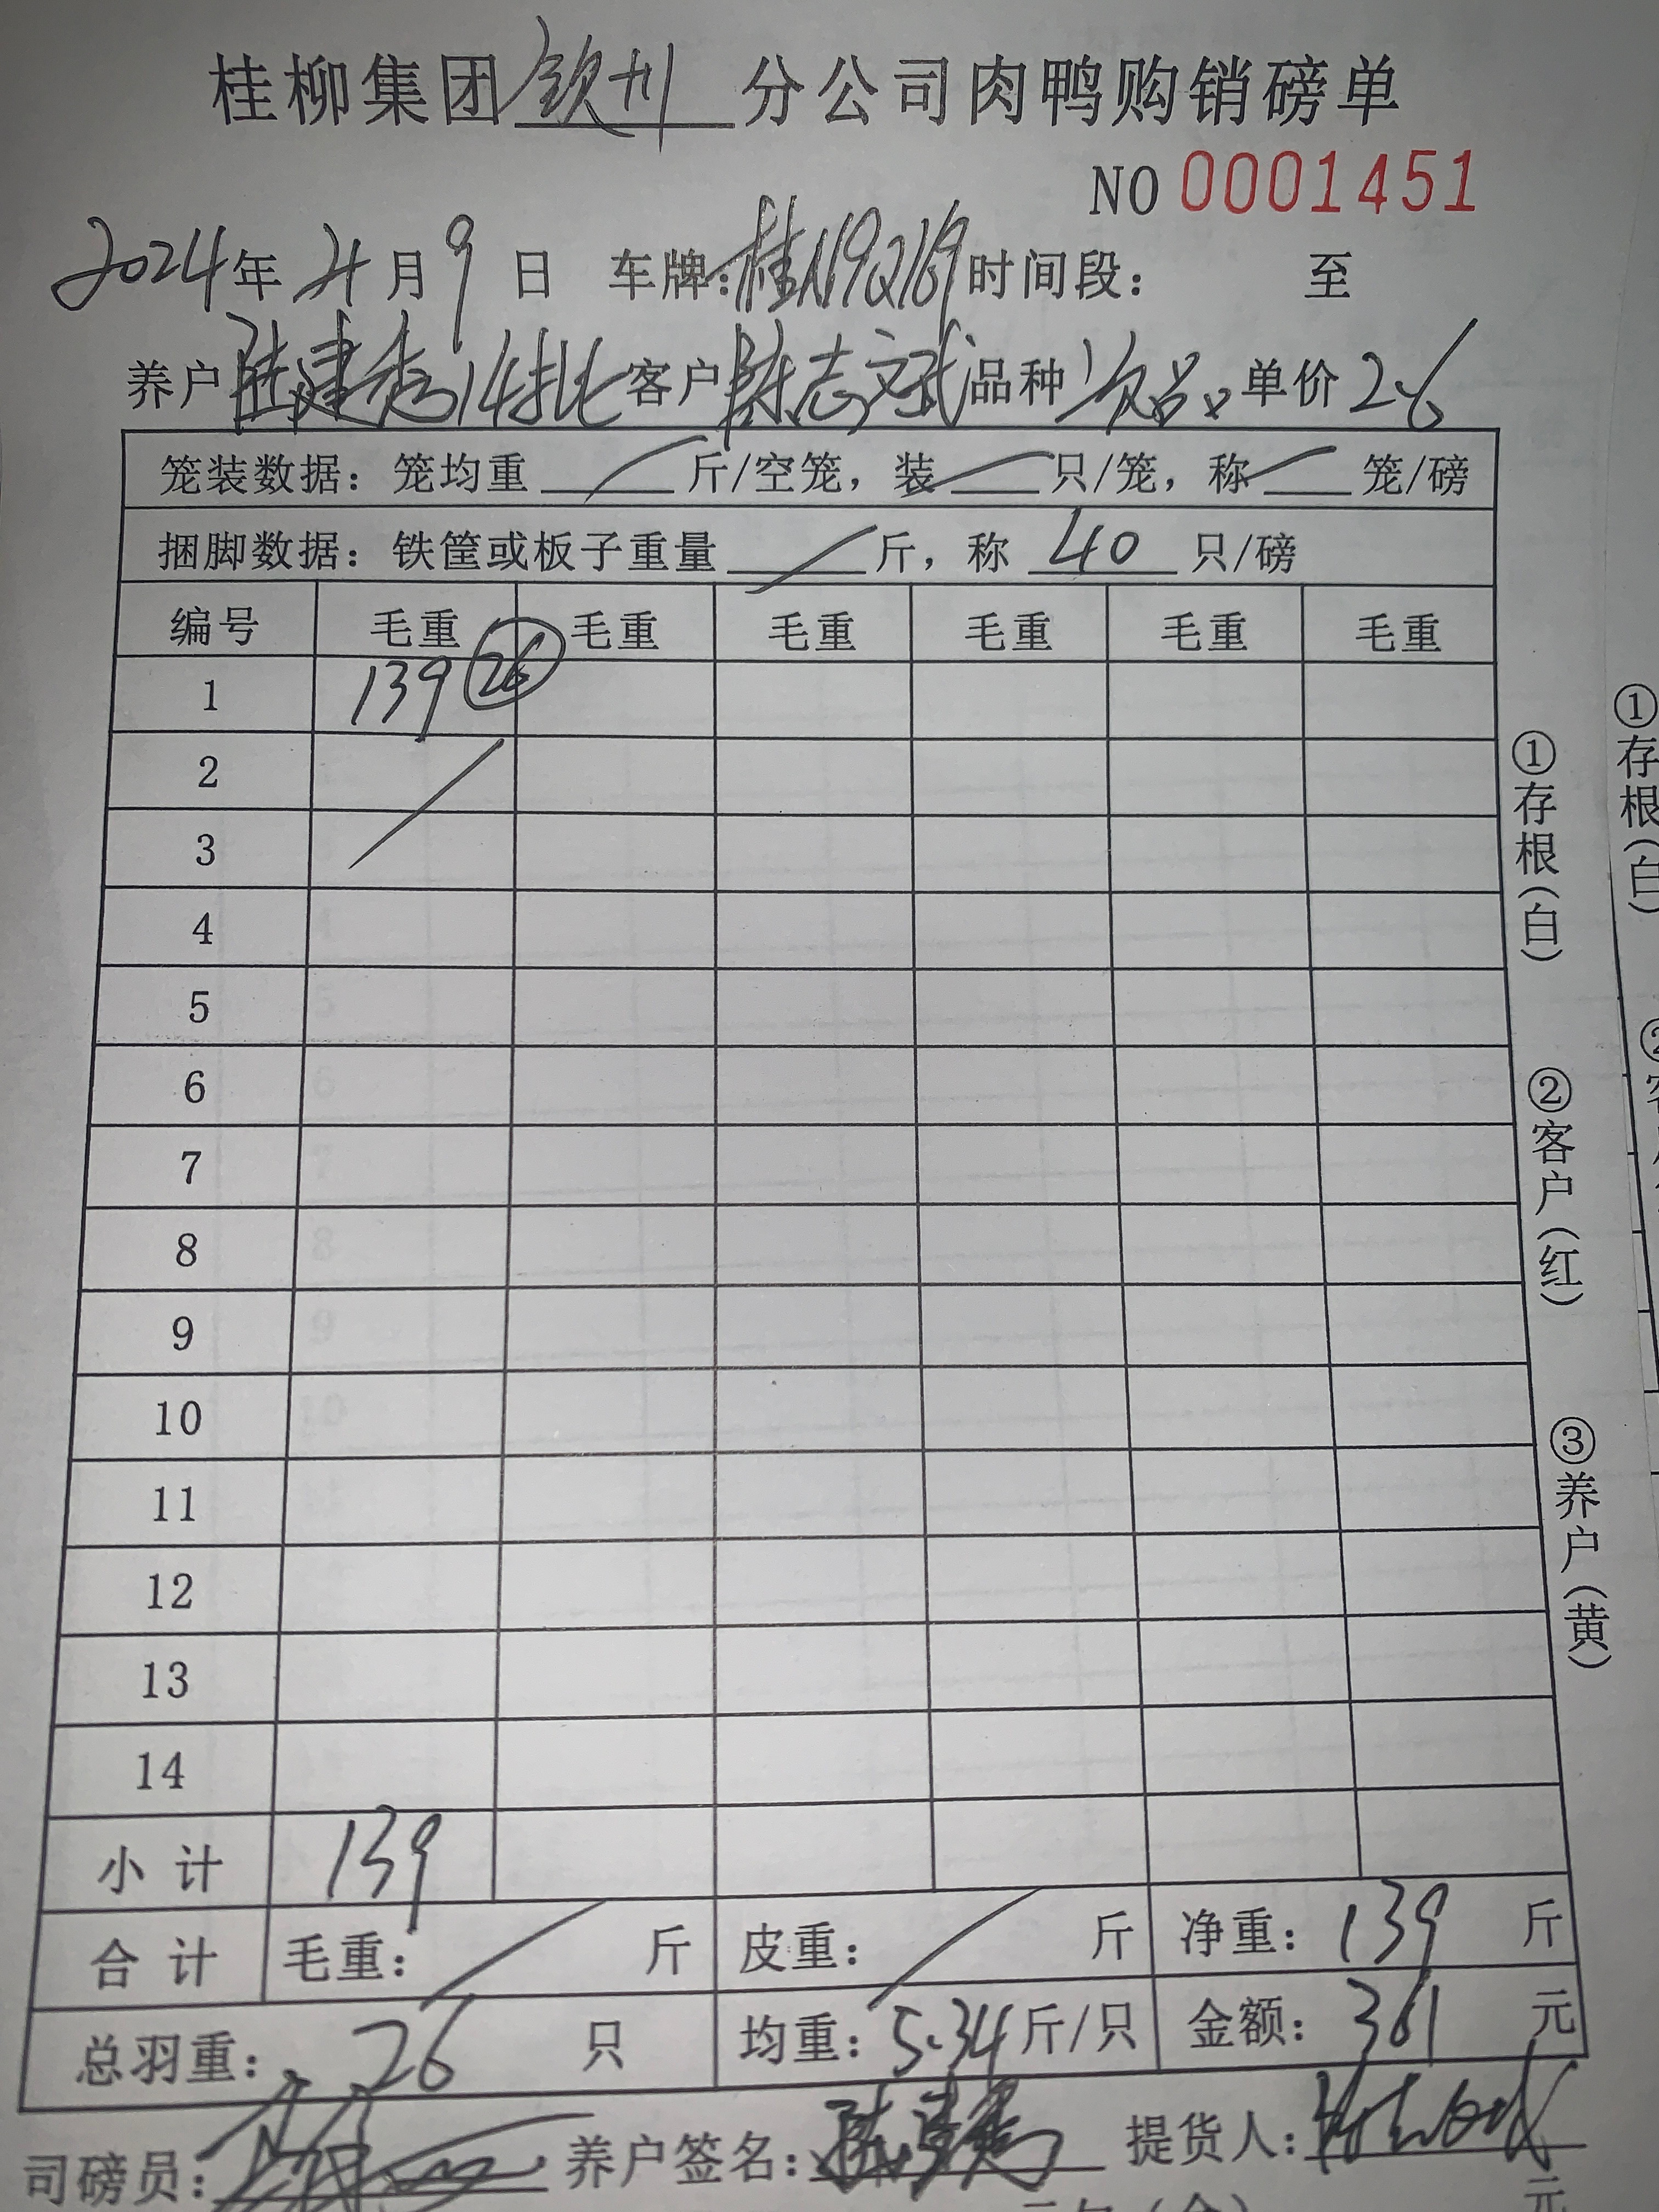 桂柳集团钦州分公司肉鸭购销磅单
NO 0001451
2024年4月9日 车牌:桂N9Q169时间段: 至
养户陆建秀14批客户陈志斌品种次品单价2.6
笼装数据:笼均重 斤/空笼,装 只/笼,称 笼/磅
捆脚数据:铁筐或板子重量 斤,称 40 只/磅
编号 毛重 毛重 毛重 毛重 毛重 毛重
1 139 26
2
3
4
5
6
7
8
9
10
11
12
13
14
小计 139
合计 毛重: 斤 皮重: 斤 净重: 139 斤
总羽重: 26 只 均重: 5.34 斤/只 金额: 361 元
司磅员: 养户签名: 提货人:
元
①存根(白)
②客户(红)
③养户(黄)
①存根(白)